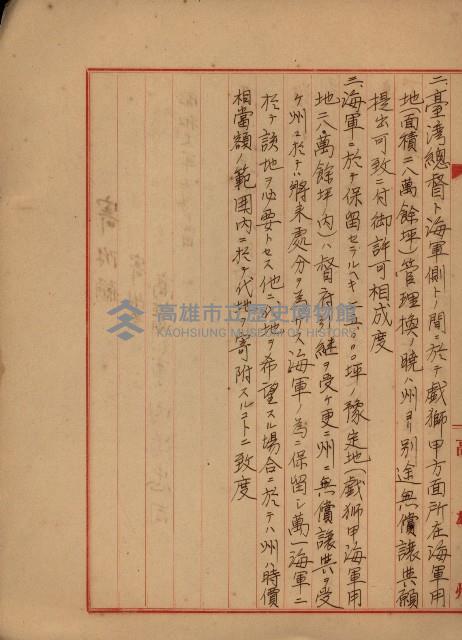 二、臺湾總督ト海軍側トノ間ニ於テ戯獅甲方面所在海軍用
地(面積二八萬餘坪)管理換ノ曉ハ州ヨリ別途無償讓與願
提出可致ニ付御許可相成度
三、海軍ニ於テ保留セラルヘキ 〇〇〇坪ノ豫定地(戯獅甲海軍用
地二八萬餘坪内)ハ督府 継ヲ受ケ更ニ州ニ無償讓與ヲ受
ケ州ニ於テハ將来處分ヲ為サス海軍ノ為ニ保留シ萬一海軍ニ
於テ該地ヲ必要トセス他ニ土地ヲ希望スル場合ニ於テハ州ハ時價
相當額ノ範囲内ニ於テ代地寄附スルコトニ致度
高雄州
寄附願
高雄市立歷史博物館
KAOHSIUNG MUSEUM OF HISTORY